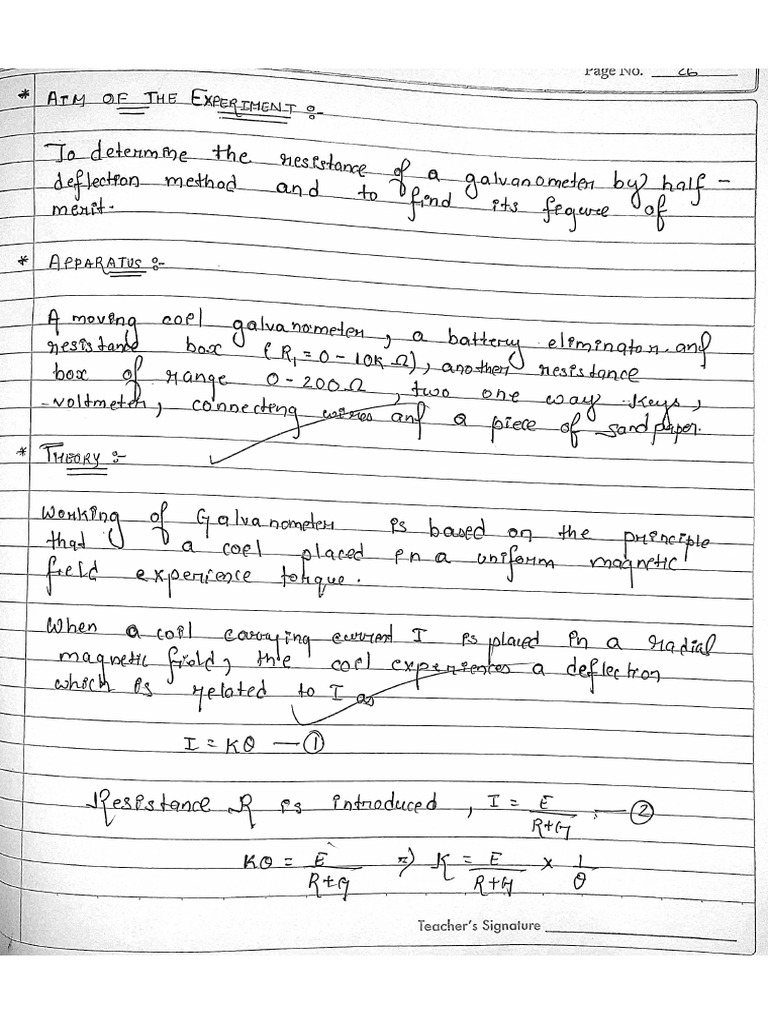 Page No. 26
* AIM OF THE EXPERIMENT :-
To determine the resistance of a galvanometer by half -
deflection method and to find its fegure of
merit.
* APPARATUS :-
A moving coel galvanometer, a battery eliminator and
resistance box (R₁ = 0 - 10k Ω), another resistance
box of range 0 - 200 Ω, two one way keys,
voltmeter, connecting wires and a piece of sand paper.
* THEORY :-
Working of Galvanometer is based on the principle
that a coel placed en a uniform magnetic
field experience torque.
When a coil carrying current I es placed in a radial
magnetic field, the coel experiences a deflection
which es related to I as
I = Kθ — ①
Resistance R is introduced, I = E/(R+G) — ②
Kθ = E/(R+G) ⇒ K = E/(R+G) × 1/θ
Teacher's Signature